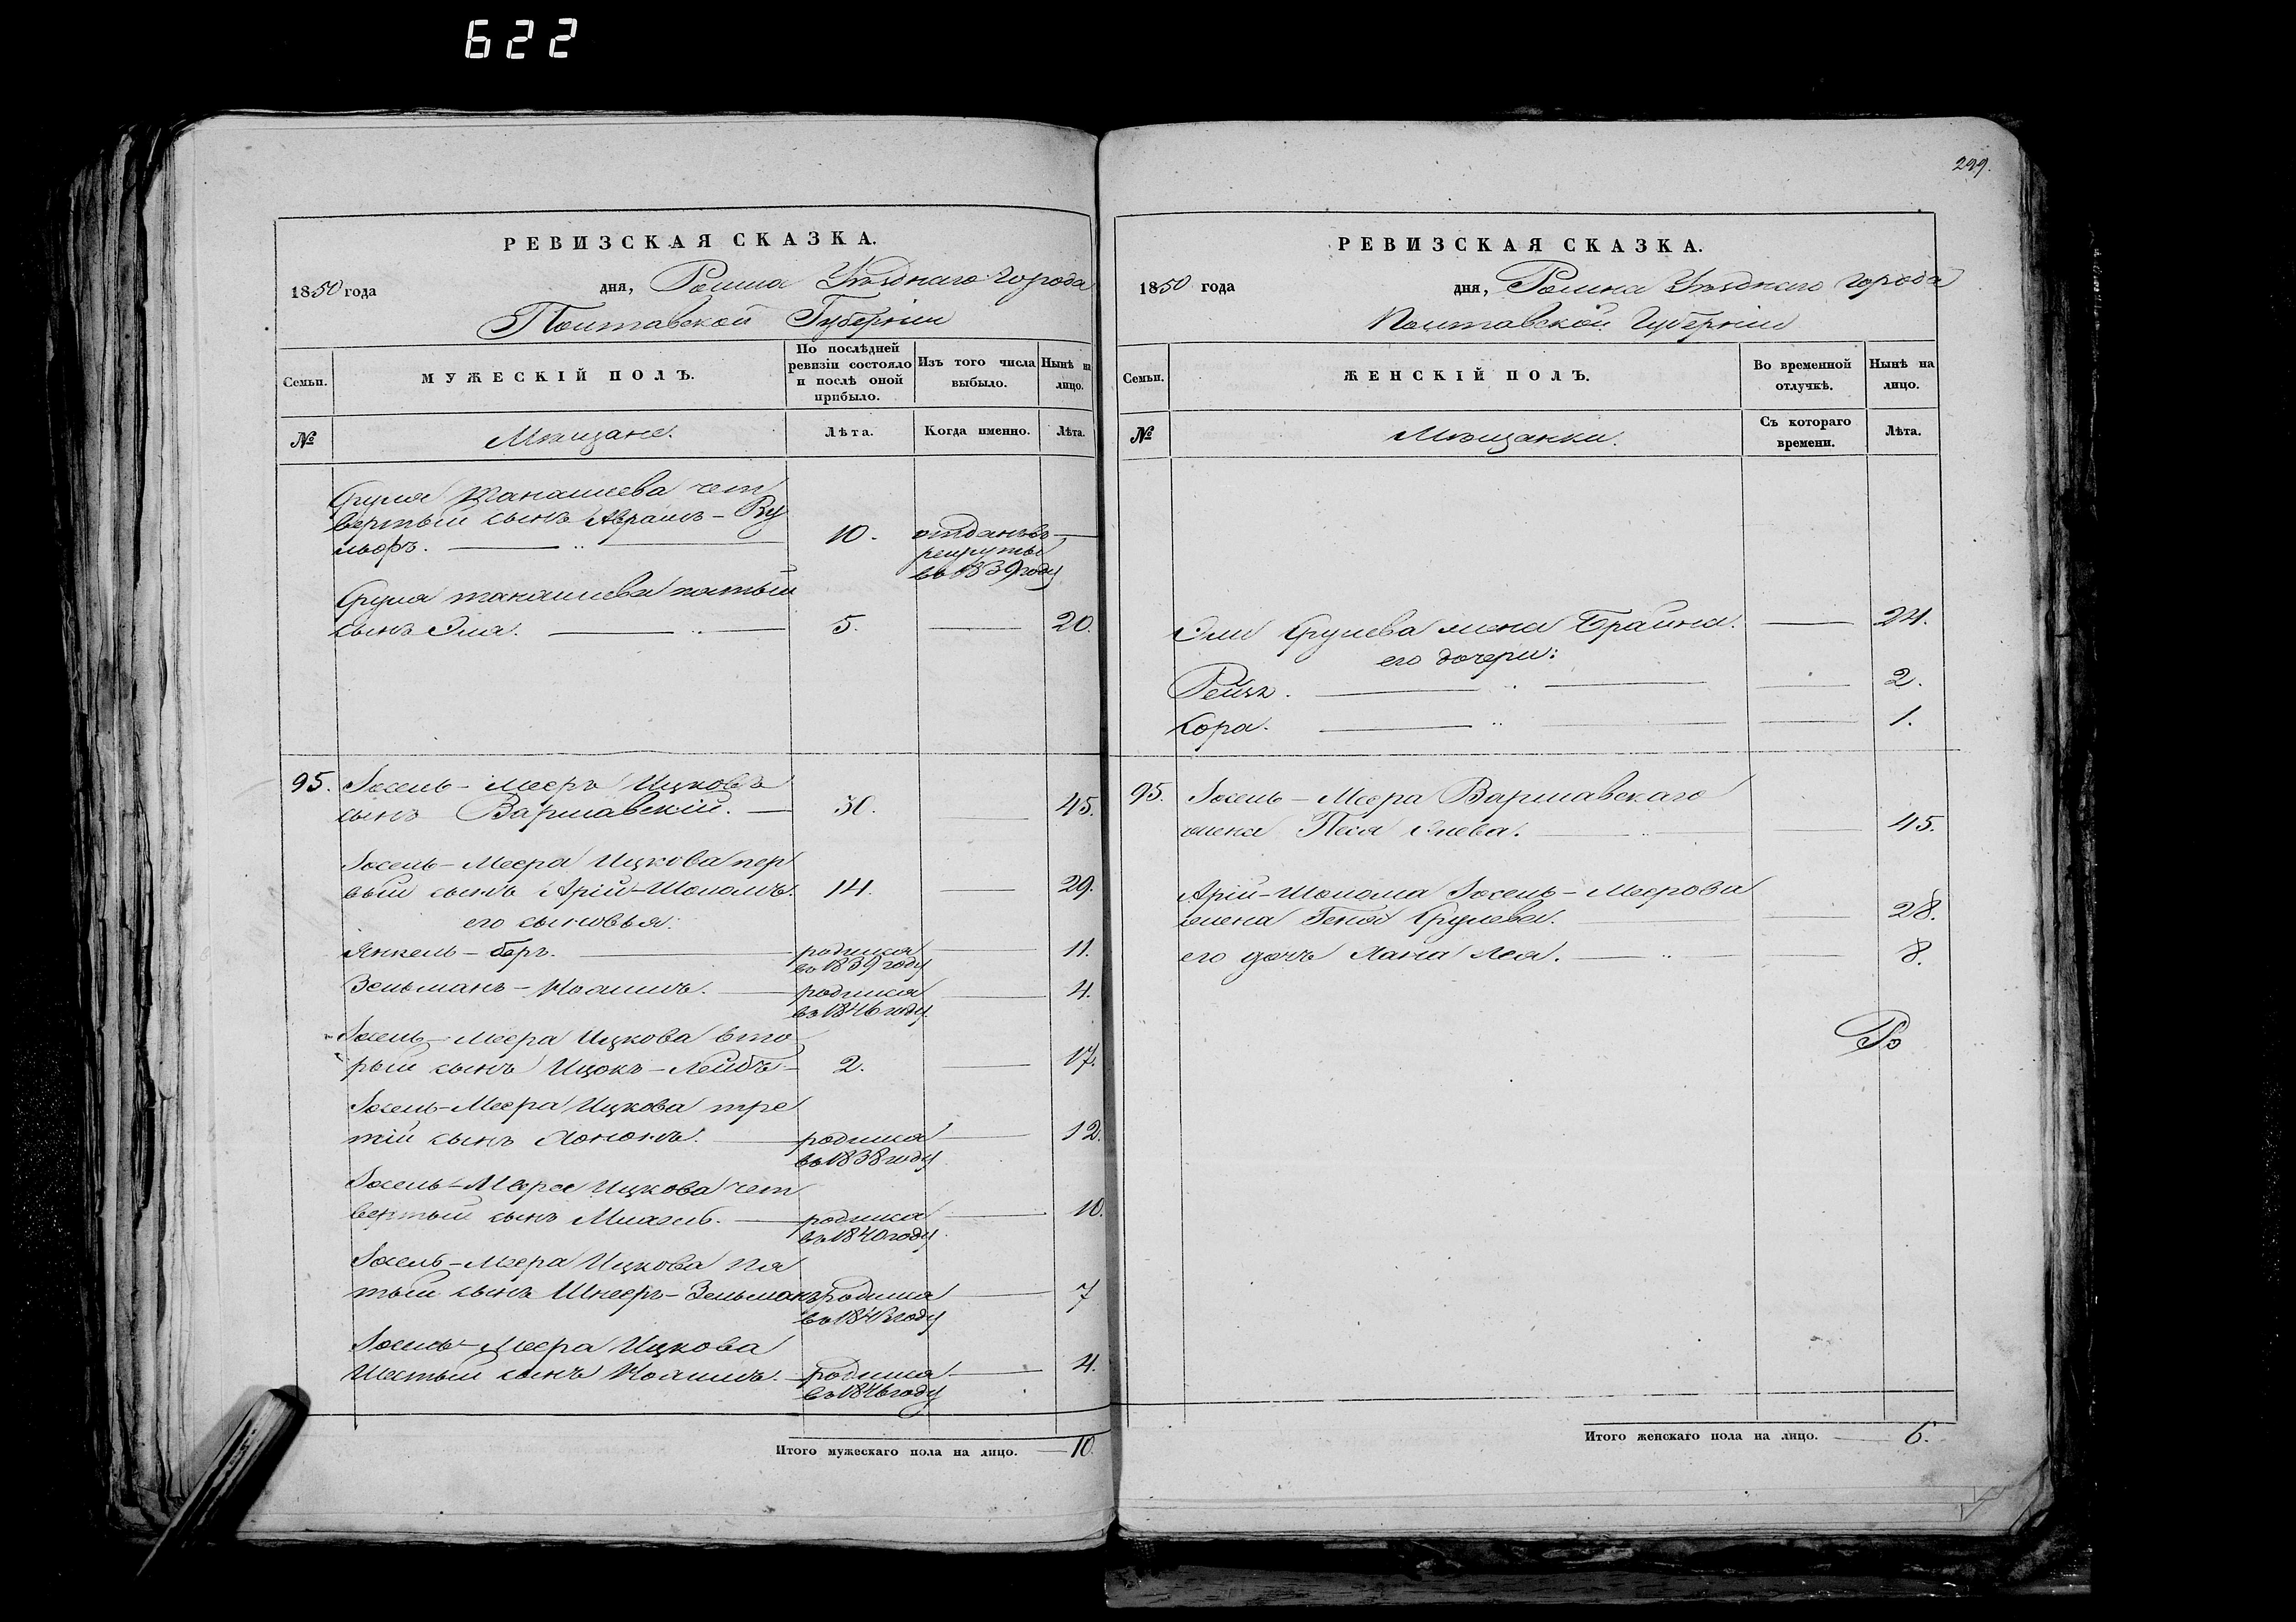 622
РЕВИЗСКАЯ СКАЗКА.
1850 года дня, Ромна Уѣзднаго города
Полтавской Губерніи
Семьи.
МУЖЕСКІЙ ПОЛЪ.
По послѣдней
ревизіи состояло
и послѣ оной
прибыло.
Изъ того числа
выбыло.
Нынѣ на
лицо.
№
Мѣщане.
Лѣта.
Когда именно.
Лѣта.
Сруля чет
вертый сынъ Абрамъ-Ву
льфъ. 10. отданъ въ
рекруты
въ 1839 году
Сруля пятый
сынъ Эля. 5. 20.
95. Іосель-Мееръ Ицковъ
сынъ Варшавскій. 30. 45.
Іосель-Меера Ицкова пер
вый сынъ Арій-Шоломъ. 14. 29.
его сыновья:
Янкель-беръ. родился 11.
въ 1839 году
Зельманъ- родился 4.
въ 1846 году.
Іосель-Меера Ицкова вто
рый сынъ Ицокъ-Лейбъ 2. 17.
Іосель-Меера Ицкова тре
тій сынъ родился 12.
въ 1838 году
Іосель-Меера Ицкова чет
вертый сынъ родился 10.
въ 1840 году
Іосель-Меера Ицкова пя
тый сынъ Шнееръ-Зельманъ родился 7
въ 1843 году
Іосель-Меера Ицкова
Шестый сынъ родился 4.
въ 1846 году
Итого мужескаго пола на лицо. 10.
299.
РЕВИЗСКАЯ СКАЗКА.
1850 года дня, Ромна Уѣзднаго города
Полтавской Губерніи
Семьи.
ЖЕНСКІЙ ПОЛЪ.
Во временной
отлучкѣ.
Нынѣ на
лицо.
№
Мѣщанки.
Съ котораго
времени.
Лѣта.
Эли Срулева жена Брайна. 24.
его дочери:
2.
Сора. 1.
95. Іосель-Меера Варшавскаго
жена Песя 45.
Арій-Шолома Іосель-Меерова
жена Геня Срулева. 28.
его дочь Хана Лея. 8.
Итого женскаго пола на лицо. 6.